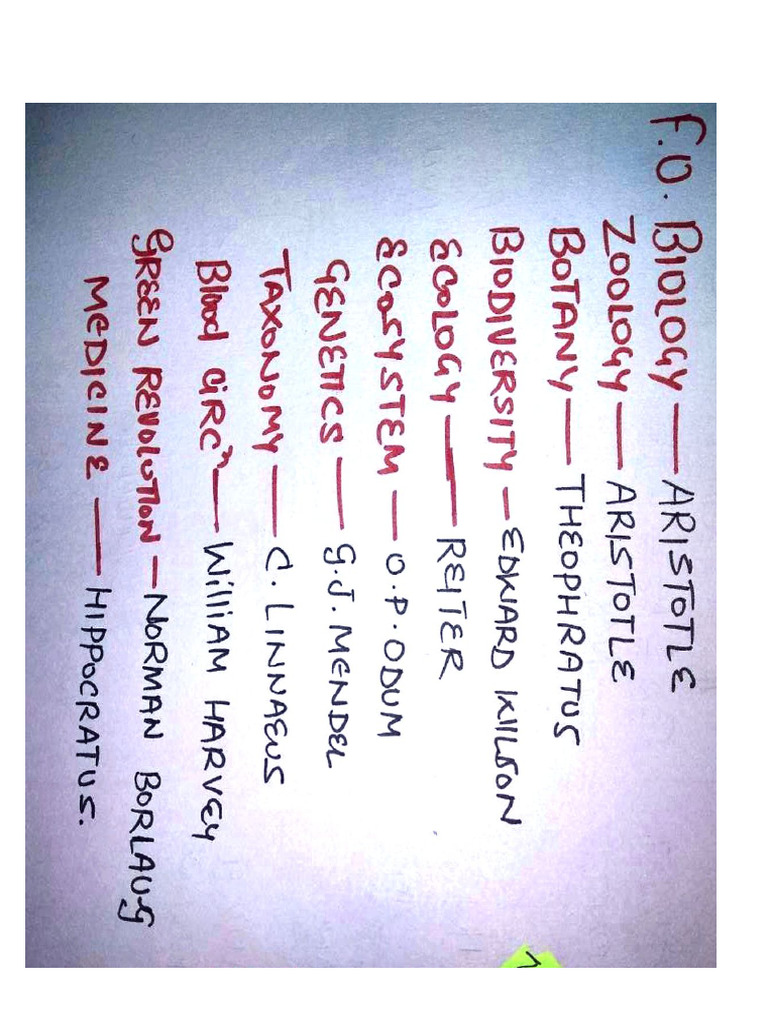 F.O. BIOLOGY — ARISTOTLE
ZOOLOGY — ARISTOTLE
BOTANY — THEOPHRATUS
BIODIVERSITY — EDWARD WILSON
ECOLOGY — REITER
ECOSYSTEM — O.P. ODUM
GENETICS — G.J. MENDEL
TAXONOMY — C. LINNAEUS
Blood CIRCⁿ — William HARVEY
GREEN REVOLUTION — NORMAN BORLAUG
MEDICINE — HIPPOCRATUS.